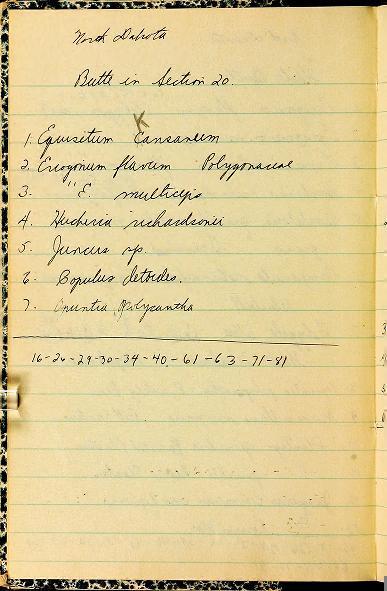 North Dakota
Butte in Section 20.
K
1. Equisetum Cansanum
2. Eriogonum flavum Polygonaceae
3. "E. multiceps
4. Heucheria richardsonii
5. Juncus sp.
6. Bopulus detoides.
7. Opuntia polycantha
16-26-29-30-34-40-61-63-71-81